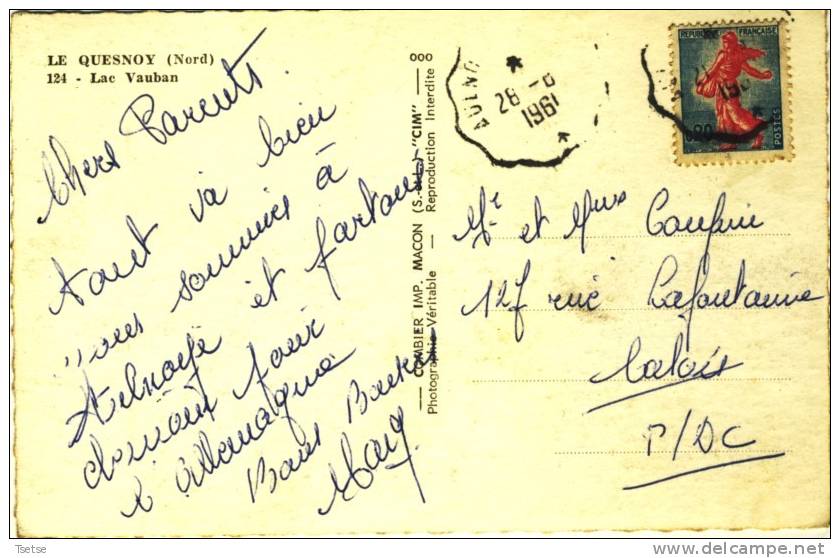 LE QUESNOY (Nord)
124 - Lac Vauban
Chers Parents
tout va bien
nous sommes à
Aulnoye et partons
demain pour
l'Allemagne
Bons Baisers
COMBIER IMP. MACON (S.-&-L.) "CIM"
Photographie Véritable — Reproduction Interdite
AULNO
28 -8
1961
REPUBLIQUE FRANÇAISE
0,20
POSTES
Mr et Mme
127 rue Lafontaine
Calais
P/DC
Tsetse
delcampe.net